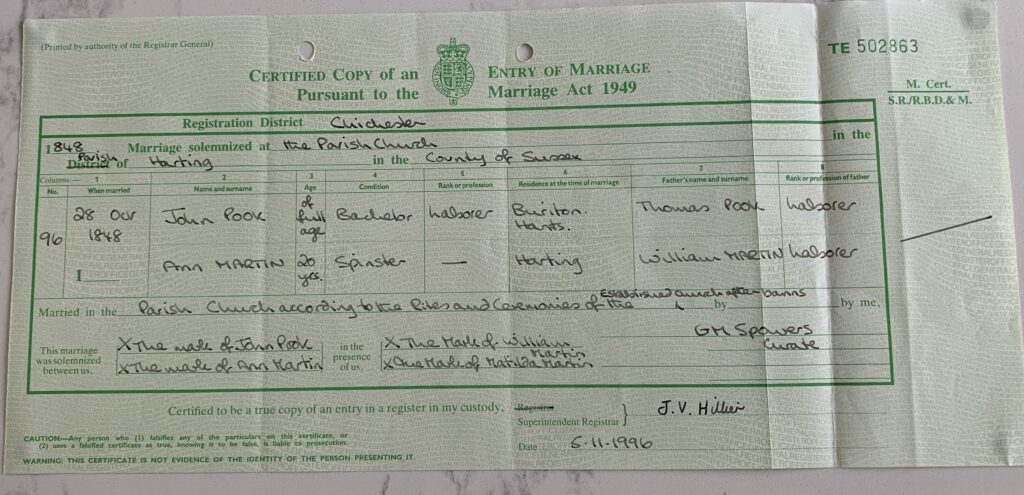 (Printed by authority of the Registrar General)
TE 502863
CERTIFIED COPY OF AN ENTRY OF MARRIAGE
PURSUANT TO THE MARRIAGE ACT 1949
M. Cert.
S.R./R.B.D. & M.
Registration District Chichester
1848 Marriage solemnized at the Parish Church in the
Parish District of Harting in the County of Sussex
Columns:— 1 2 3 4 5 6 7 8
No. When married Name and surname Age Condition Rank or profession Residence at the time of marriage Father's name and surname Rank or profession of father
96 28 Oct 1848 John POOK of full age Bachelor Laborer Buriton. Hants. Thomas POOK Laborer
1 Ann MARTIN 20 yrs. Spinster — Harting William MARTIN Laborer
Married in the Parish Church according to the Rites and Ceremonies of the Established Church after banns by by me,
This marriage was solemnized between us, X The mark of John Pook in the presence of us, X The Mark of William Martin GM Spowers
X The mark of Ann Martin X The Mark of Matilda Martin Curate
Certified to be a true copy of an entry in a register in my custody. Registrar
Superintendent Registrar } J. V. Hillier
Date 5-11-1996
CAUTION:—Any person who (1) falsifies any of the particulars on this certificate, or
(2) uses a falsified certificate as true, knowing it to be false, is liable to prosecution.
WARNING: THIS CERTIFICATE IS NOT EVIDENCE OF THE IDENTITY OF THE PERSON PRESENTING IT.